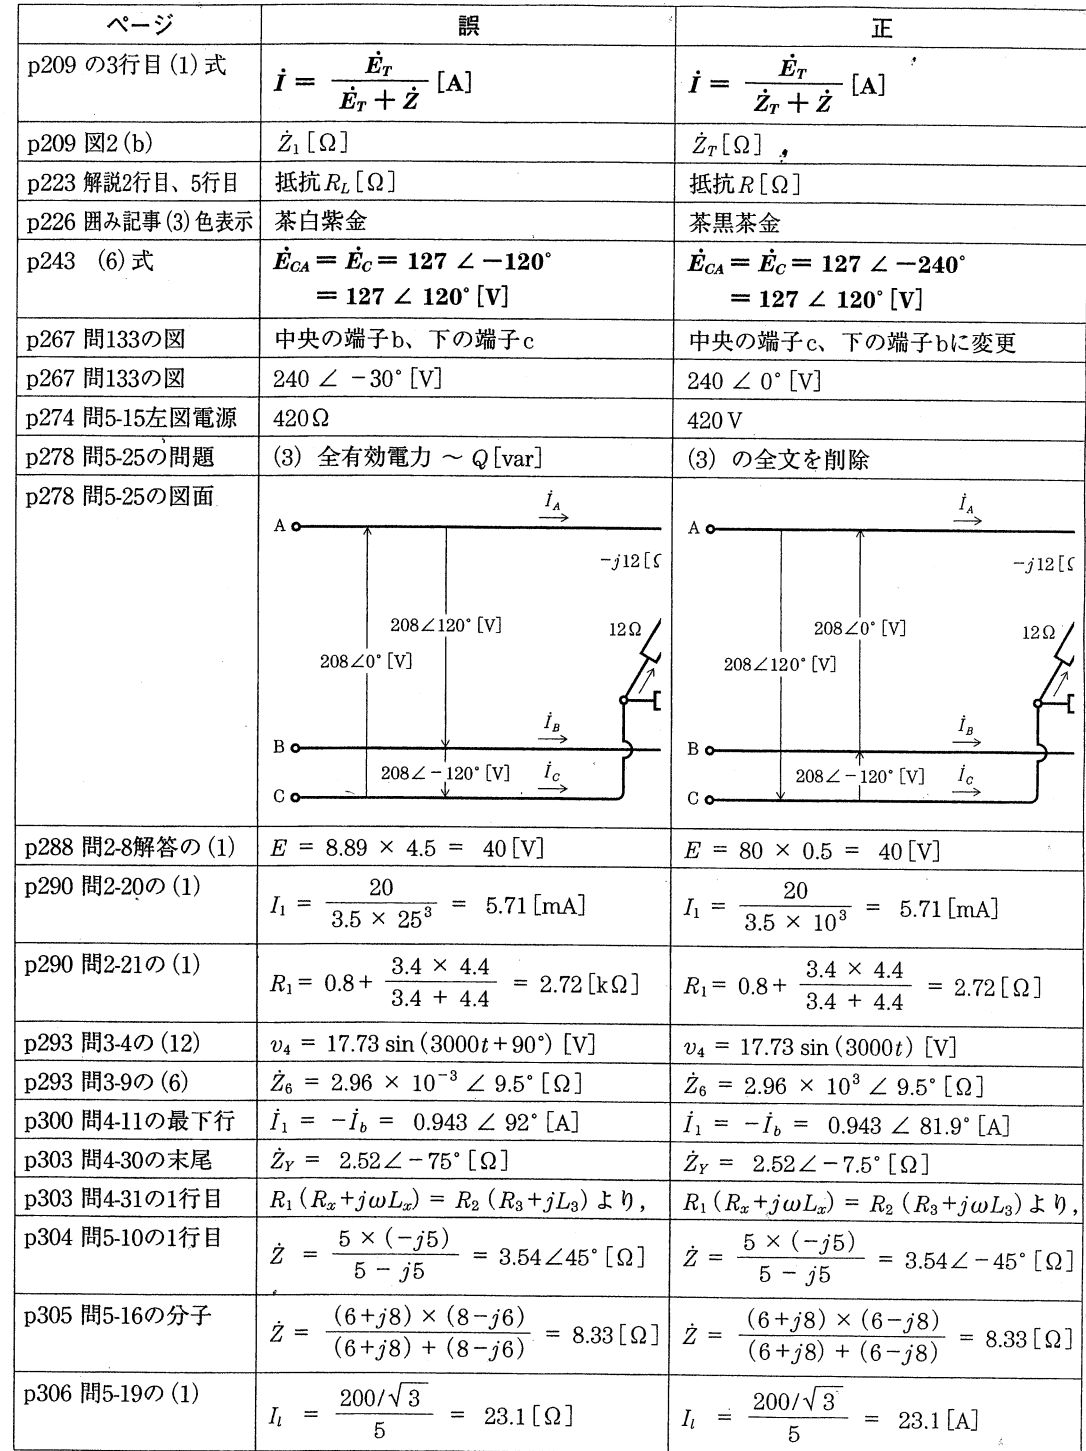 ページ 誤 正
p209 の3行目(1)式 İ = Ė_T / (Ė_T + Ż) [A] İ = Ė_T / (Ż_T + Ż) [A]
p209 図2(b) Ż₁[Ω] Ż_T[Ω]
p223 解説2行目、5行目 抵抗R_L[Ω] 抵抗R[Ω]
p226 囲み記事(3)色表示 茶白紫金 茶黒茶金
p243 (6)式 Ė_CA = Ė_C = 127 ∠ −120° Ė_CA = Ė_C = 127 ∠ −240°
= 127 ∠ 120°[V] = 127 ∠ 120°[V]
p267 問133の図 中央の端子b、下の端子c 中央の端子c、下の端子bに変更
p267 問133の図 240 ∠ −30°[V] 240 ∠ 0°[V]
p274 問5-15左図電源 420Ω 420V
p278 問5-25の問題 (3) 全有効電力 〜 Q[var] (3) の全文を削除
p278 問5-25の図面
İ_A
A
−j12[Ω
208∠120°[V]
12Ω
208∠0°[V]
İ_B
B
208∠−120°[V]
İ_C
C
İ_A
A
−j12[Ω
208∠0°[V]
12Ω
208∠120°[V]
İ_B
B
208∠−120°[V]
İ_C
C
p288 問2-8解答の(1) E = 8.89 × 4.5 = 40[V] E = 80 × 0.5 = 40[V]
p290 問2-20の(1) I₁ = 20 / (3.5 × 25³) = 5.71[mA] I₁ = 20 / (3.5 × 10³) = 5.71[mA]
p290 問2-21の(1) R₁ = 0.8 + (3.4 × 4.4) / (3.4 + 4.4) = 2.72[kΩ] R₁ = 0.8 + (3.4 × 4.4) / (3.4 + 4.4) = 2.72[Ω]
p293 問3-4の(12) v₄ = 17.73 sin(3000t+90°) [V] v₄ = 17.73 sin(3000t) [V]
p293 問3-9の(6) Ż₆ = 2.96 × 10⁻³ ∠ 9.5°[Ω] Ż₆ = 2.96 × 10³ ∠ 9.5°[Ω]
p300 問4-11の最下行 İ₁ = −İ_b = 0.943 ∠ 92°[A] İ₁ = −İ_b = 0.943 ∠ 81.9°[A]
p303 問4-30の末尾 Ż_Y = 2.52∠−75°[Ω] Ż_Y = 2.52∠−7.5°[Ω]
p303 問4-31の1行目 R₁(R_x+jωL_x) = R₂(R₃+jL₃)より, R₁(R_x+jωL_x) = R₂(R₃+jωL₃)より,
p304 問5-10の1行目 Ż = 5 × (−j5) / (5 − j5) = 3.54∠45°[Ω] Ż = 5 × (−j5) / (5 − j5) = 3.54∠−45°[Ω]
p305 問5-16の分子 Ż = (6+j8) × (8−j6) / ((6+j8) + (8−j6)) = 8.33[Ω] Ż = (6+j8) × (6−j8) / ((6+j8) + (6−j8)) = 8.33[Ω]
p306 問5-19の(1) I_l = (200/√3) / 5 = 23.1[Ω] I_l = (200/√3) / 5 = 23.1[A]